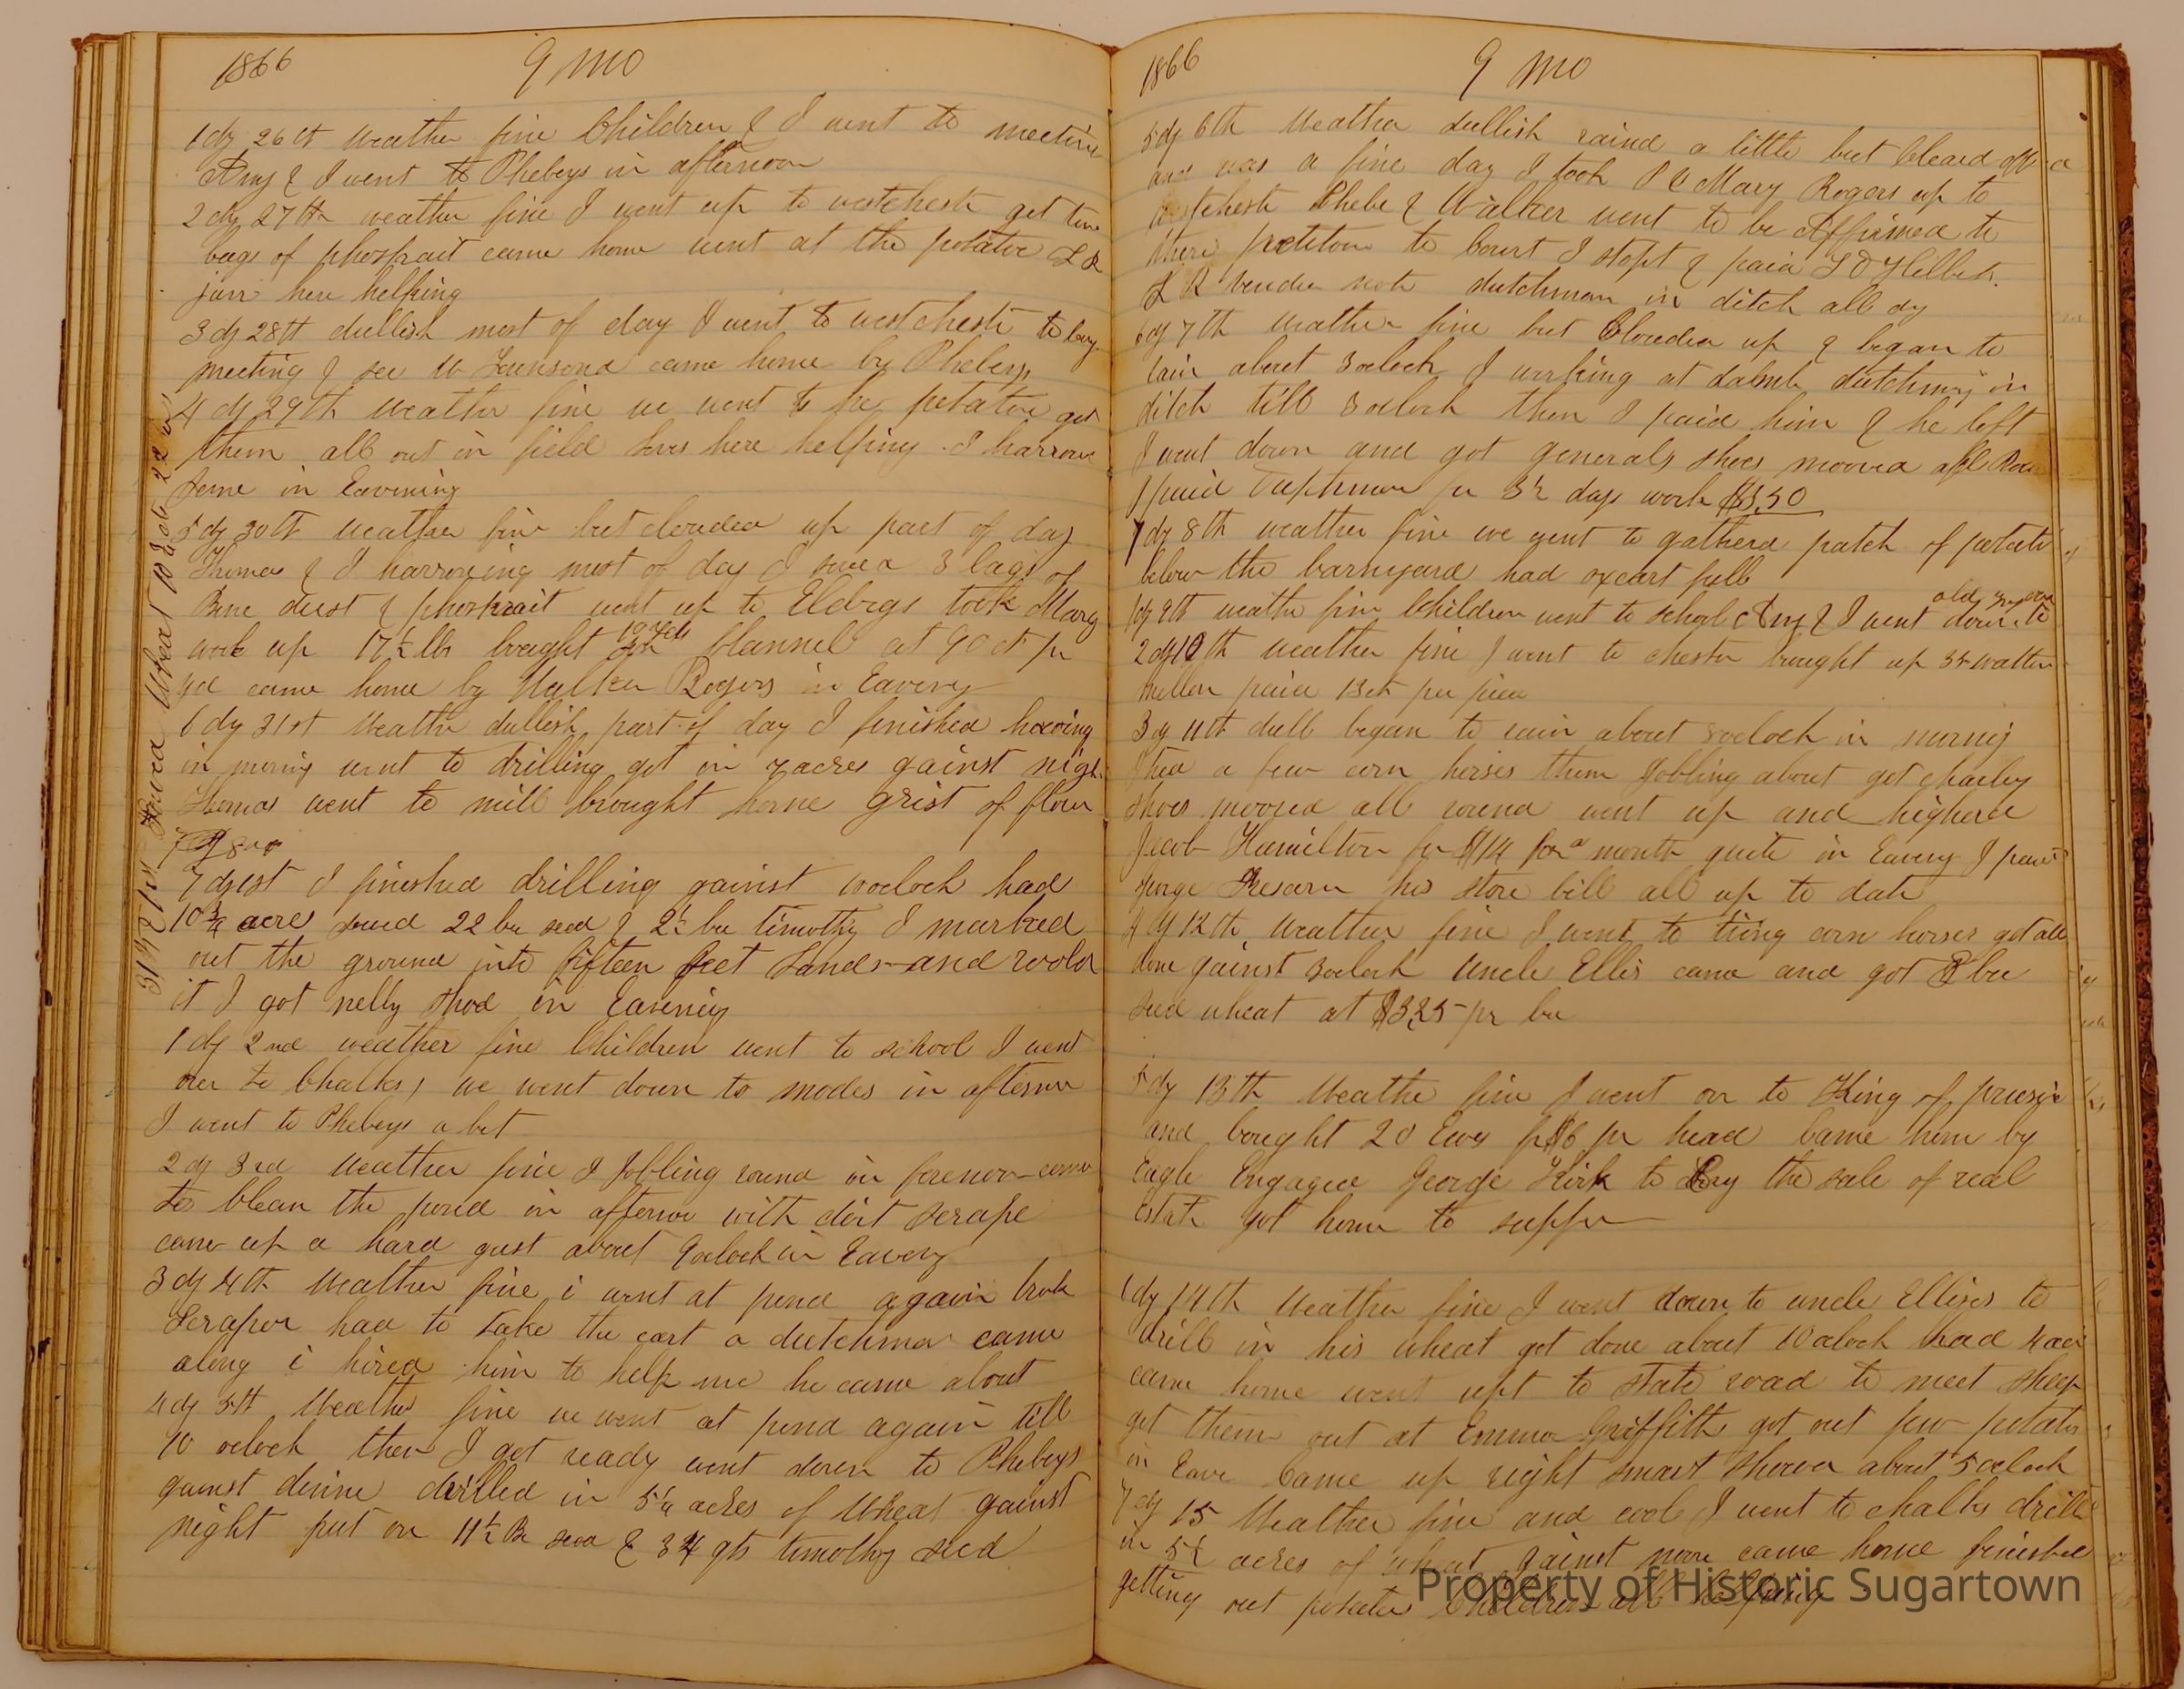 1866 9 mo
1 dy 26th Weather fine Children & I went to meeting
Amy & I went to Phebeys in afternoon
2 dy 27th weather fine I went up to westchestr get
bags of phosphrait came home went at the potatoe
here helping
3 dy 28th dullish most of day I went to westchestr to
meeting & see W came home by Phebeys
4 dy 29th Weather fine we went to the potatoe got
them all out in field here helping I harrow
some in Eavening
5 dy 30th Weather fine but clouded up part of day
Thomas & I harrowing most of day I sowed 3 bags of
Bone dust & phosphrait went up to took Mary
wool up 17½ lbs bought 10 yds flannel at 90 ct pr
yd came home by Walker Rogers in Eaveng
6 dy 31st Weather dullish part of day I finished
in morning went to drilling got in 7 acres gainst night
Thomas went to mill brought home grist of flour
7 dy 1st I finished drilling gainst had
10¾ acres sowed 22 bu seed & 2½ bu timothy I marked
out the ground into fifteen feet Lands and rold
it I got nelly shod in Eavening
1 dy 2nd weather fine Children went to school I went
over to Chalks, we went down to modes in afternoon
I went to Phebeys a bit
2 dy 3rd Weather fine I Jobling round in forenoon
to Clean the pond in afternoon with dirt scrape
came up a hard gust about 9 oclock in Eaveng
3 dy 4th Weather fine i went at pond again broke
Scraper had to take the cart a dutchman came
along i hired him to help me he came about
4 dy 5th Weather fine we went at pond again till
10 oclock then I got ready went down to Phebeys
gainst dinner drilled in 5¼ acres of Wheat gainst
night put on 11½ Bu seed & 34 qts timothy seed
Sowed Wheat
1866 9 mo
5 dy 6th Weather dullish raind a little but Cleard off
and was a fine day I took P & Mary Rogers up to
westchestr Phebe & Walker went to be Affirmed to
there petetion to Court I stopt & paid
L R vendue note dutchman in ditch all dy
6 dy 7th Weather fine but Clouded up & began to
rain about 3 oclock I working at dutchman in
ditch till 3 oclock then I paid him & he left
I went down and got Generals shoes mooved all Round
I paid Dutchman for 3½ days work $3,50
7 dy 8th weather fine we went to gatherd patch of potatoes
below the barnyard had oxcart full
1 dy 9th weather fine Children went to school Amy & I went down to
old
2 dy 10th weather fine I went to chester brought up 35 watter
mellon paid 13 ct per piece
3 dy 11th dull began to rain about 8 oclock in morning
I tied a few corn horses then Jobling about got charley
shoes mooved all round went up and highered
Jacob Hamilton for $14 for a month quite in Eaveng I paid
George his store bill all up to date
4 dy 12th Weather fine I went to tiing corn horses got all
done gainst 3 oclock Uncle Ellis came and got bu
seed wheat at $3,25 pr bu
5 dy 13th Weather fine I went on to King of
and bought 20 Ewes for $6 pr head Came home by
Eagle Engaged George Kirk to Cry the sale of real
Estate got home to supper
6 dy 14th Weather fine I went down to uncle Ellises to
drill in his wheat got done about 10 oclock had 4 acr
came home went upt to state road to meet sheep
get them out at Emmor Griffith got out few potatoes
in Eave Came up right smart shower about 5 oclock
7 dy 15 Weather fine and cool I went to chalks drilld
in 5½ acres of wheat gainst noon came home finished
getting out potatoes Children all helping
Property of Historic Sugartown